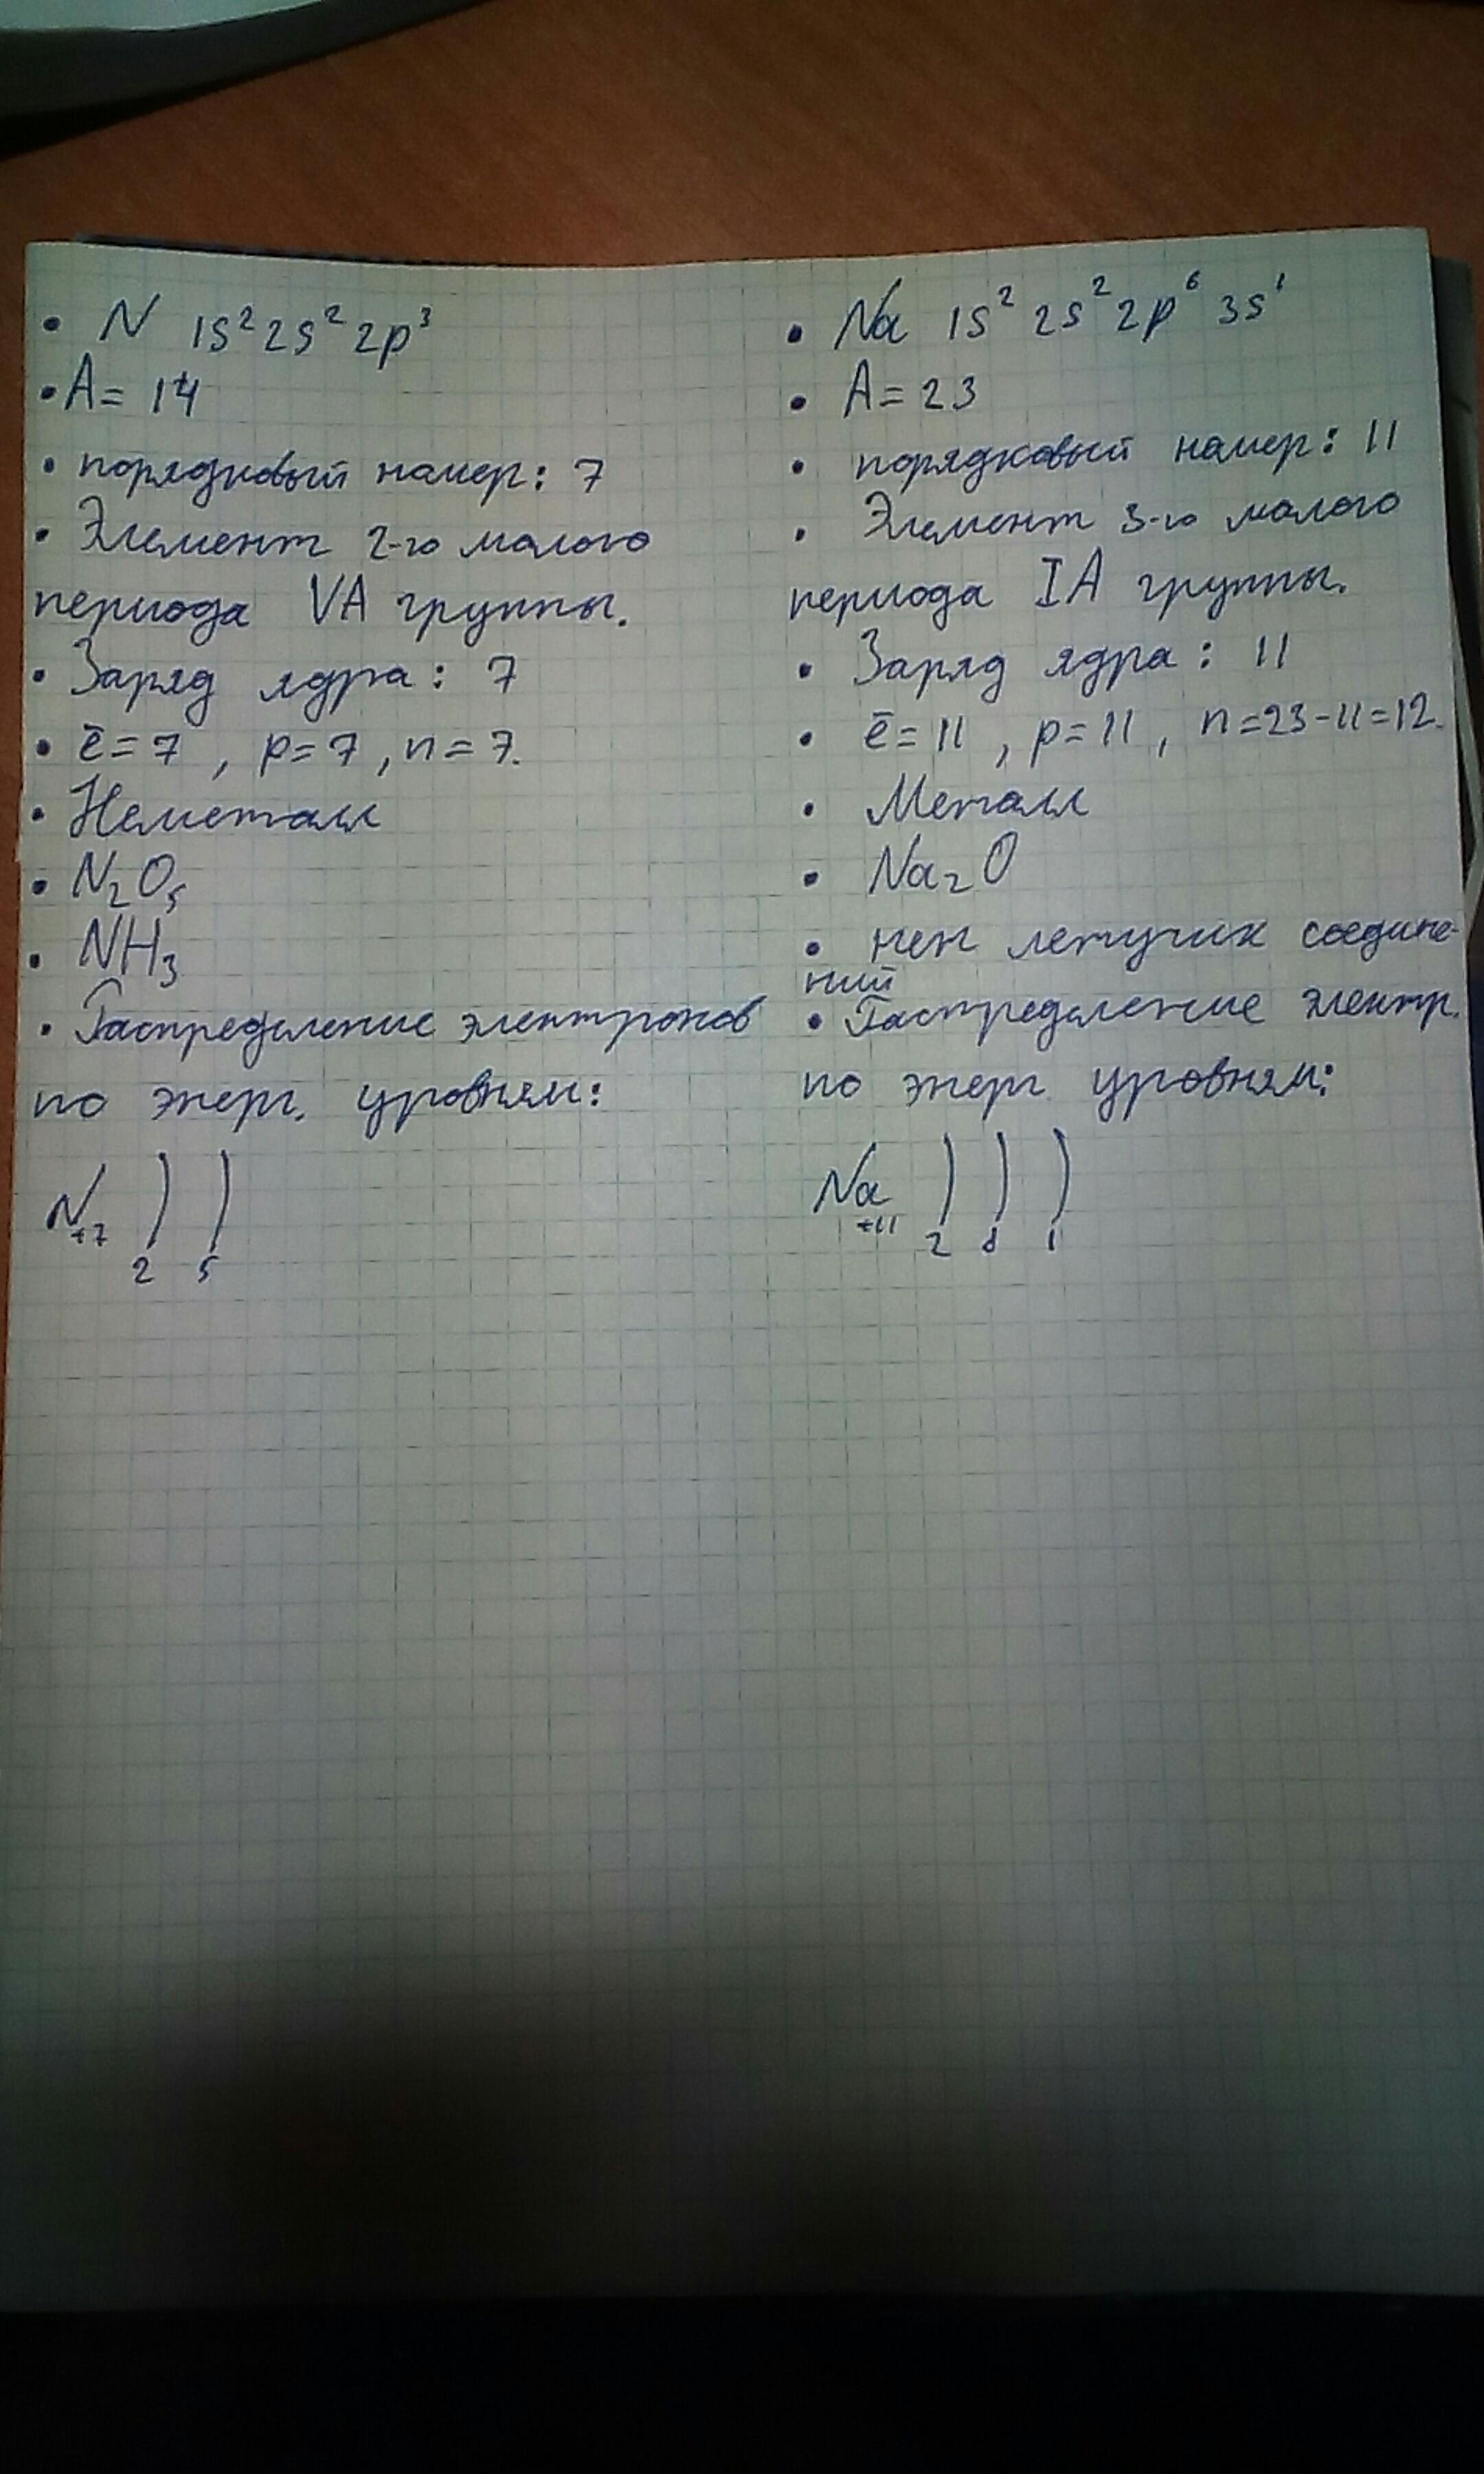 • N 1s² 2s² 2p³
• A = 14
• порядковый намер: 7
• Элемент 2-го малого
периода VA группы.
• Заряд ядра: 7
• ē = 7 , p = 7 , n = 7.
• Неметалл
• N₂O₅
• NH₃
• Распределение электронов
по энерг. уровням:
N +7 ) )
2 5
• Na 1s² 2s² 2p⁶ 3s¹
• A = 23
• порядковый намер: 11
• Элемент 3-го малого
периода IA группы.
• Заряд ядра: 11
• ē = 11 , p = 11 , n = 23 - 11 = 12.
• Металл
• Na₂O
• нет летучих соедине-
ний
• Распределение электр.
по энерг. уровням:
Na +11 ) ) )
2 8 1